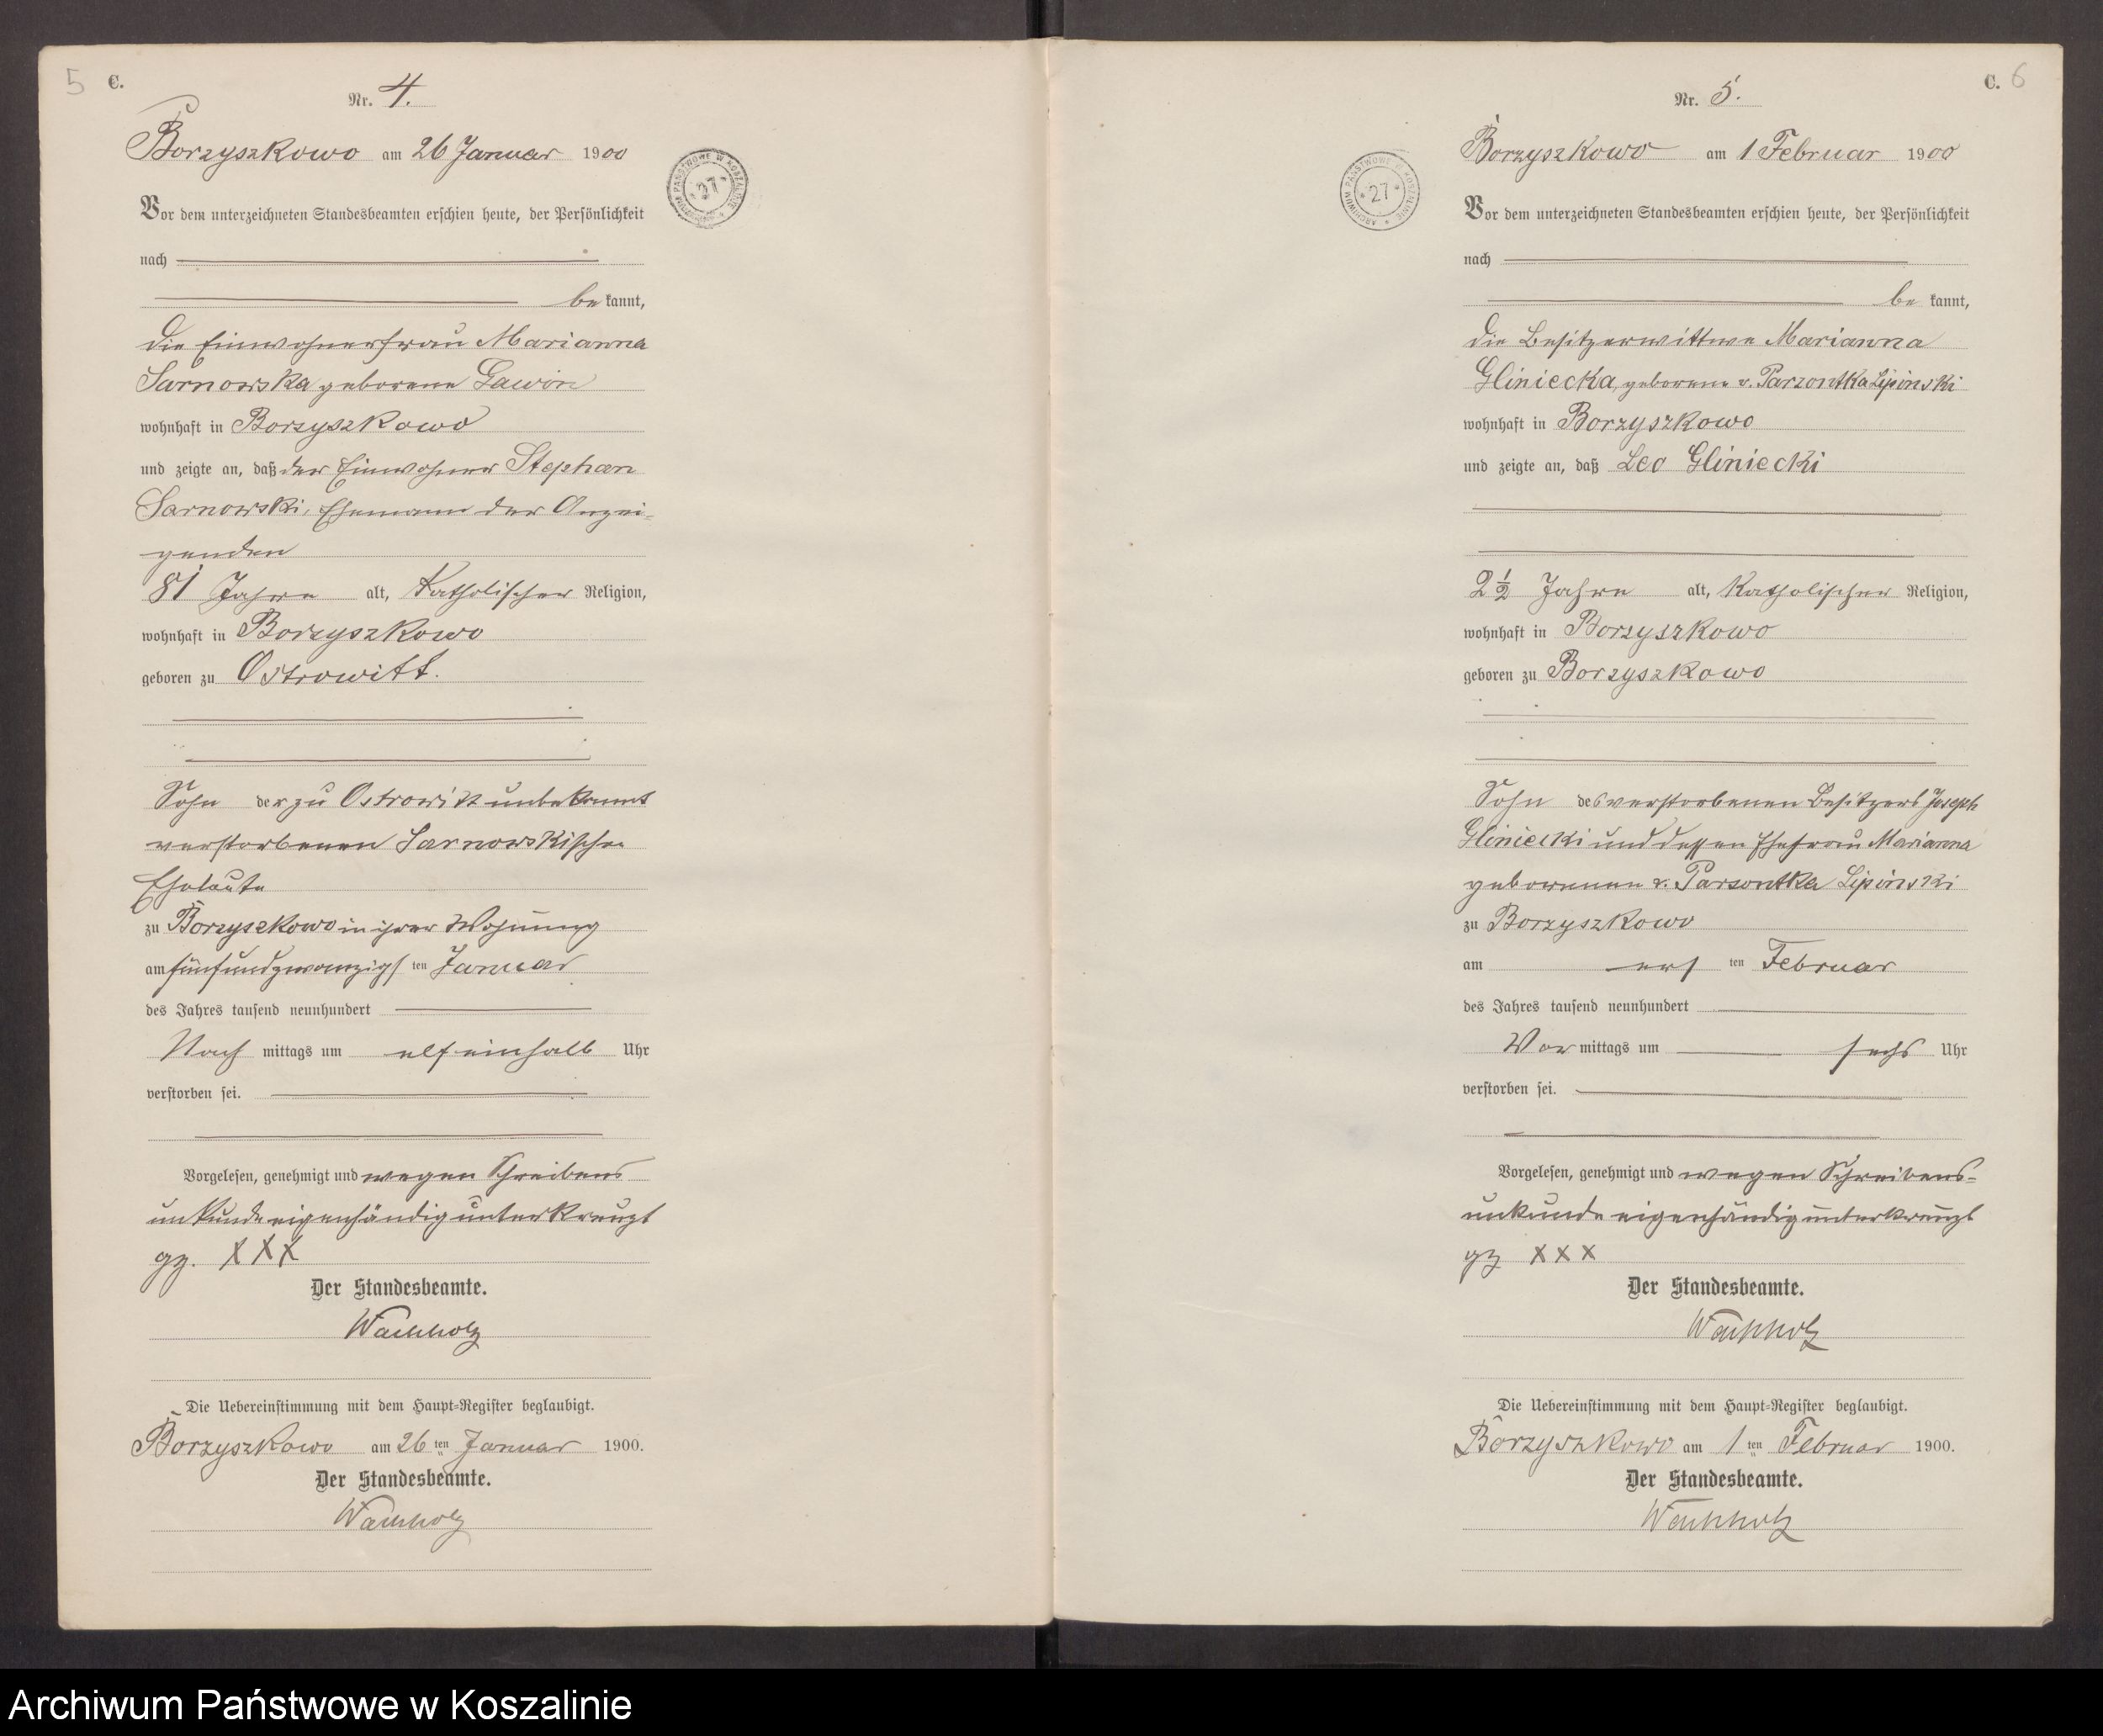 5 C.
Nr. 4.
Borzyszkowo am 26 Januar 1900
Vor dem unterzeichneten Standesbeamten erschien heute, der Persönlichkeit
nach
be kannt,
die Einwohnerfrau Marianna
Sarnowska geborene Gawin
wohnhaft in Borzyszkowo
und zeigte an, daß der Einwohner Stephan
Sarnowski, Ehemann der Anzei-
genden
81 Jahre alt, katholischer Religion,
wohnhaft in Borzyszkowo
geboren zu Ostrowitt.
Sohn der zu Ostrowitt unbekannt
verstorbenen Sarnowskischen
Eheleute
zu Borzyszkowo in ihrer Wohnung
am fünfundzwanzigsten Januar
des Jahres tausend neunhundert
Nach mittags um elfeinhalb Uhr
verstorben sei.
Vorgelesen, genehmigt und wegen Schreibens
unkunde eigenhändig unterkreuzt
gz. XXX
Der Standesbeamte.
Wachholz
Die Uebereinstimmung mit dem Haupt-Register beglaubigt.
Borzyszkowo am 26 ten Januar 1900.
Der Standesbeamte.
Wachholz
ARCHIWUM PAŃSTWOWE W KOSZALINIE * 27 *
C. 6
Nr. 5.
Borzyszkowo am 1 Februar 1900
ARCHIWUM PAŃSTWOWE W KOSZALINIE * 27 *
Vor dem unterzeichneten Standesbeamten erschien heute, der Persönlichkeit
nach
be kannt,
die Besitzerwittwe Marianna
Gliniecka, geborene v. Parzontka Lipinski
wohnhaft in Borzyszkowo
und zeigte an, daß Leo Gliniecki
2 1/2 Jahre alt, katholischer Religion,
wohnhaft in Borzyszkowo
geboren zu Borzyszkowo
Sohn des verstorbenen Besitzers Joseph
Gliniecki und dessen Ehefrau Marianna
geborenen v. Parzontka Lipinski
zu Borzyszkowo
am ersten Februar
des Jahres tausend neunhundert
Vor mittags um sechs Uhr
verstorben sei.
Vorgelesen, genehmigt und wegen Schreibens-
unkunde eigenhändig unterkreuzt
gz XXX
Der Standesbeamte.
Wachholz
Die Uebereinstimmung mit dem Haupt-Register beglaubigt.
Borzyszkowo am 1 ten Februar 1900.
Der Standesbeamte.
Wachholz
Archiwum Państwowe w Koszalinie